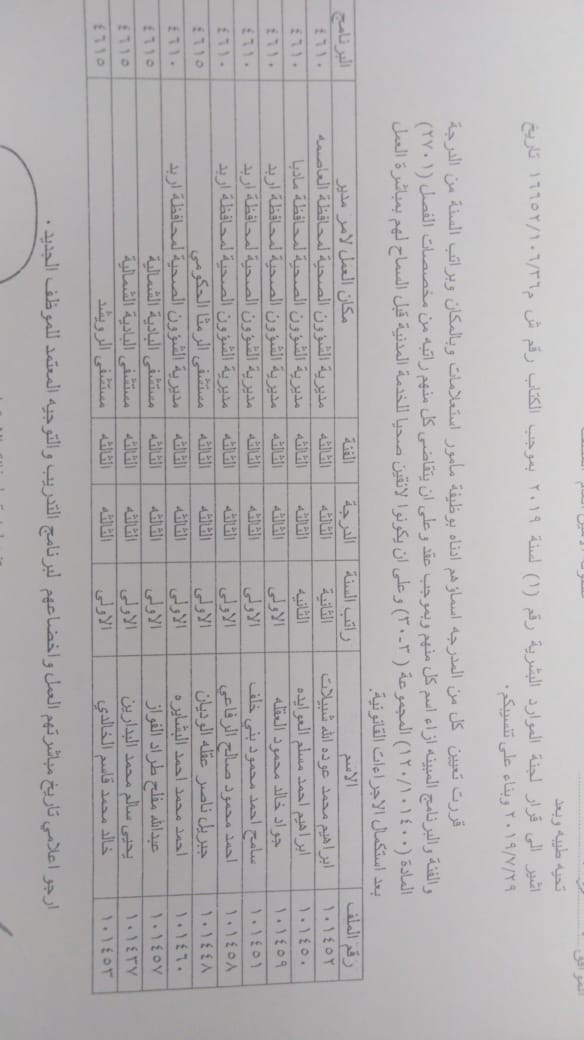 الموافق
تحيه طيبه وبعد
اشير الى قرار لجنة الموارد البشرية رقم (١) لسنة ٢٠١٩ بموجب الكتاب رقم ش م/١٠٦/٣٦/١٦٦٥٢ تاريخ
٢٠١٩/٧/٢٩ وبناء على تنسيبكم.
قررت تعيين كل من المدرجه اسماؤهم ادناه بوظيفة مأمور استعلامات وبالمكان وبراتب السنة من الدرجة
والفئة والبرنامج المبينه ازاء اسم كل منهم وبموجب عقد وعلى ان يتقاضى كل منهم راتبه من مخصصات الفصل (٢٧٠١)
المادة (١٢٠/١٠١٤٠٠) المجموعة (٣-٣٠) وعلى ان يكونوا لائقين صحيا للخدمة المدنية قبل السماح لهم بمباشرة العمل
بعد استكمال الاجراءات القانونية.
رقم الملف الاسم راتب السنة الدرجة الفئة مكان العمل لامر مدير البرنامج
١٠١٤٥٢ ابراهيم محمد عوده الله شبيلات الثانية الثالثه الثالثه مديرية الشؤون الصحية لمحافظة العاصمه ٤٦١٠
١٠١٤٥٠ ابراهيم احمد مسلم العوايده الثانيه الثالثه الثالثه مديرية الشؤون الصحية لمحافظة مادبا ٤٦١٠
١٠١٤٥٩ جواد خالد محمود العقله الاولى الثالثه الثالثه مديرية الشؤون الصحية لمحافظة اربد ٤٦١٠
١٠١٤٥١ سامح احمد محمود بني خلف الاولى الثالثه الثالثه مديرية الشؤون الصحية لمحافظة اربد ٤٦١٠
١٠١٤٥٨ احمد محمود صالح الرفاعي الاولى الثالثه الثالثه مديرية الشؤون الصحية لمحافظة اربد ٤٦١٠
١٠١٤٤٨ جبريل ناصر عقله الوديان الاولى الثالثه الثالثه مستشفى الرمثا الحكومي ٤٦١٥
١٠١٤٦٠ احمد محمد احمد الشايره الاولى الثالثه الثالثه مديرية الشؤون الصحية لمحافظة اربد ٤٦١٠
١٠١٤٥٧ عبدالله مفلح طراد الفواز الاولى الثالثه الثالثه مستشفى البادية الشمالية ٤٦١٥
١٠١٤٣٧ يحيى سالم محمد البدارين الاولى الثالثه الثالثه مستشفى البادية الشمالية ٤٦١٥
١٠١٤٥٣ خالد محمد قاسم الخالدي الاولى الثالثه الثالثه مستشفى الرويشد ٤٦١٥
ارجو اعلامي تاريخ مباشرتهم العمل واخضاعهم لبرنامج التدريب والتوجيه المعتمد للموظف الجديد.